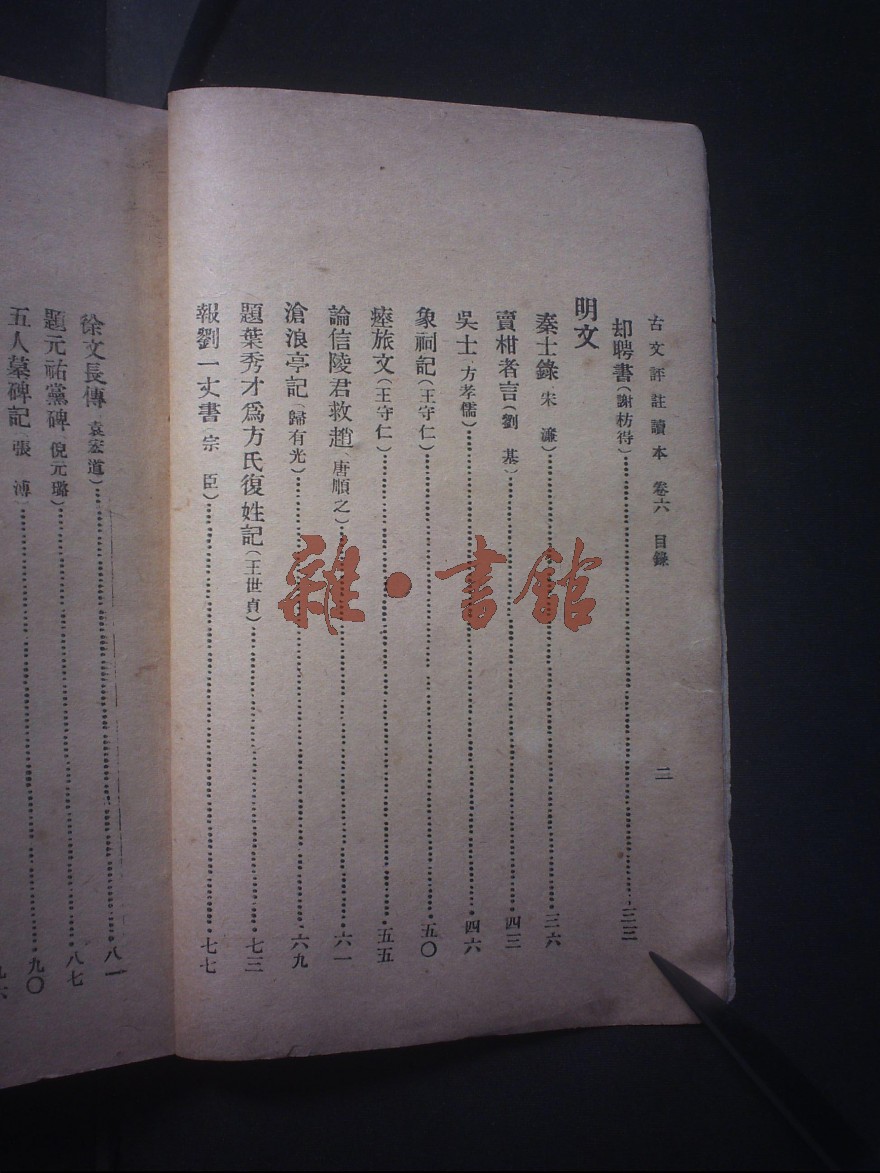 古文評註讀本 卷六 目錄 二
却聘書(謝枋得)……三三
明文
秦士錄(宋濂)……三六
賣柑者言(劉基)……四三
吳士(方孝儒)……四六
象祠記(王守仁)……五〇
瘞旅文(王守仁)……五五
論信陵君救趙(唐順之)……六一
滄浪亭記(歸有光)……六九
題葉秀才爲方氏復姓記(王世貞)……七三
報劉一丈書(宗臣)……七七
徐文長傳(袁宏道)……八一
題元祐黨碑(倪元璐)……八七
五人墓碑記(張溥)……九〇
九六
雜·書館